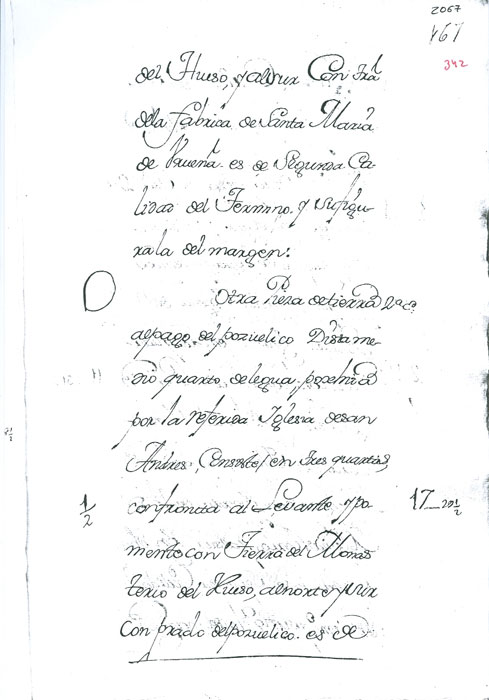 2067
167
342
del Hueso, y al sur Con trã
dela fabrica de Santa Maria
de es de Segunda Ca-
lidad del Termino. y su figu-
ra la del margen:
Otra Pieza de tierra
al pago del pozuelico Dista me-
dio quarto de legua, posehida
por la referida Iglesia de san
Andres: Consiste en tres quartas,
1/2 confronta al Levante y po- 17
niente con Tierra del Monas
terio del Hueso, al norte y sur
Con prado del pozuelico. es de